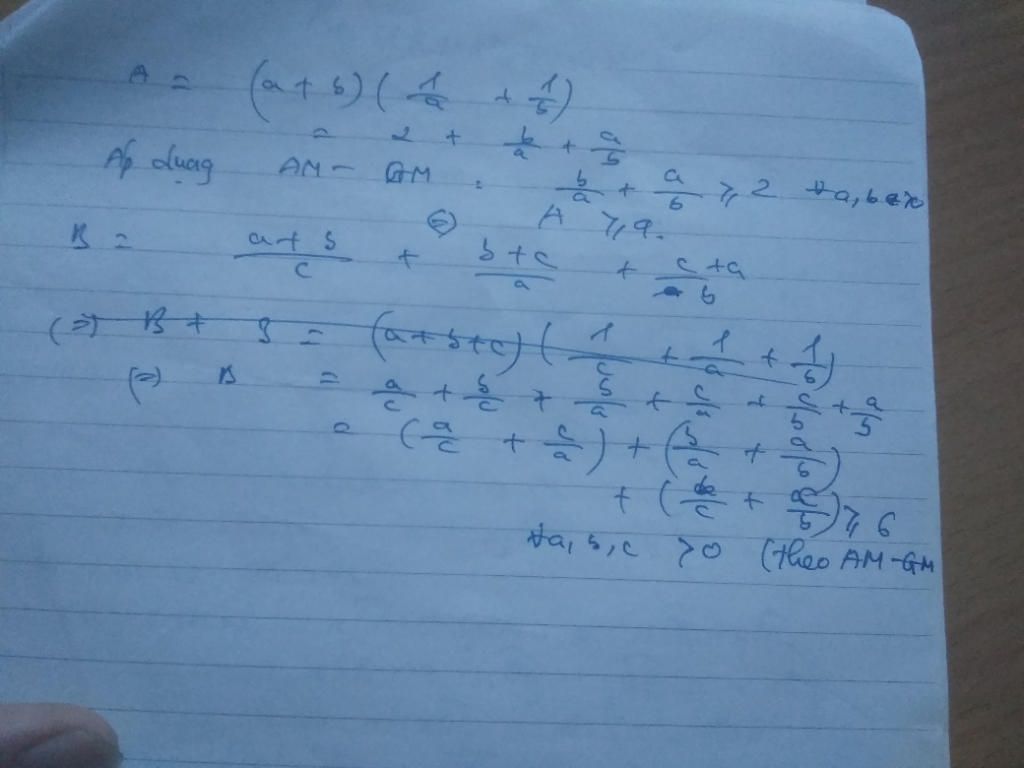 A = (a + b)(1/a + 1/b)
= 2 + b/a + a/b
Áp dụng AM - GM : b/a + a/b ≥ 2 ∀a, b
(=) A ≥ 4.
B = (a + b)/c + (b + c)/a + (c + a)/b
(=) B + 3 = (a + b + c)(1/c + 1/a + 1/b)
(=) B = a/c + b/c + b/a + c/a + c/b + a/b
= (a/c + c/a) + (b/a + a/b)
+ (b/c + c/b) ≥ 6
∀a, b, c > 0 (theo AM - GM